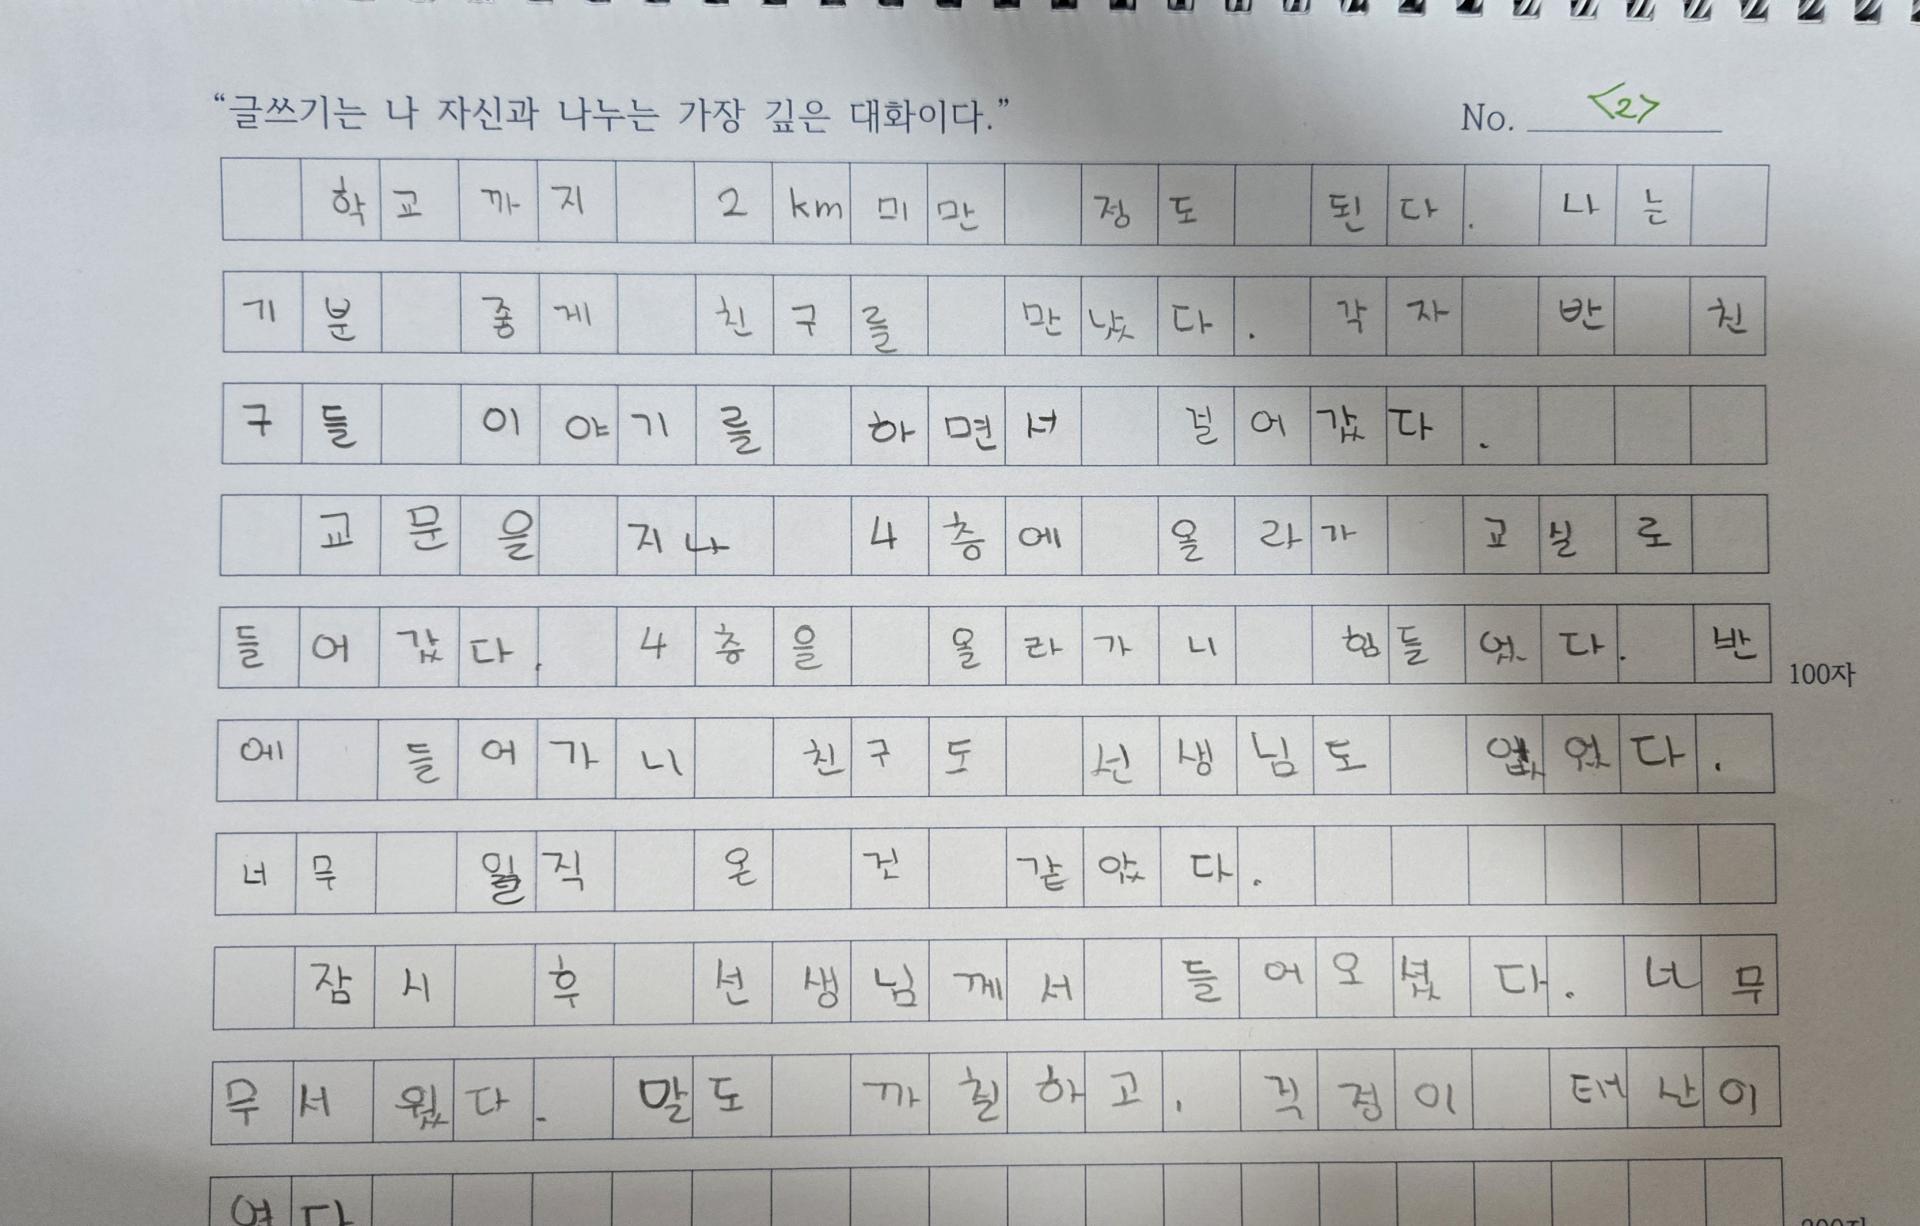 “글쓰기는 나 자신과 나누는 가장 깊은 대화이다.” No. <2>
학교까지 2km미만 정도 된다. 나는
기분 좋게 친구를 만났다. 각자 반 친
구들 이야기를 하면서 걸어갔다.
교문을 지나 4층에 올라가 교실로
들어갔다. 4층을 올라가니 힘들었다. 반 100자
에 들어가니 친구도 선생님도 없었다.
너무 일직 온 건 같았다.
잠시 후 선생님께서 들어오셨다. 너무
무서웠다. 말도 까칠하고, 걱정이 태산이
였다